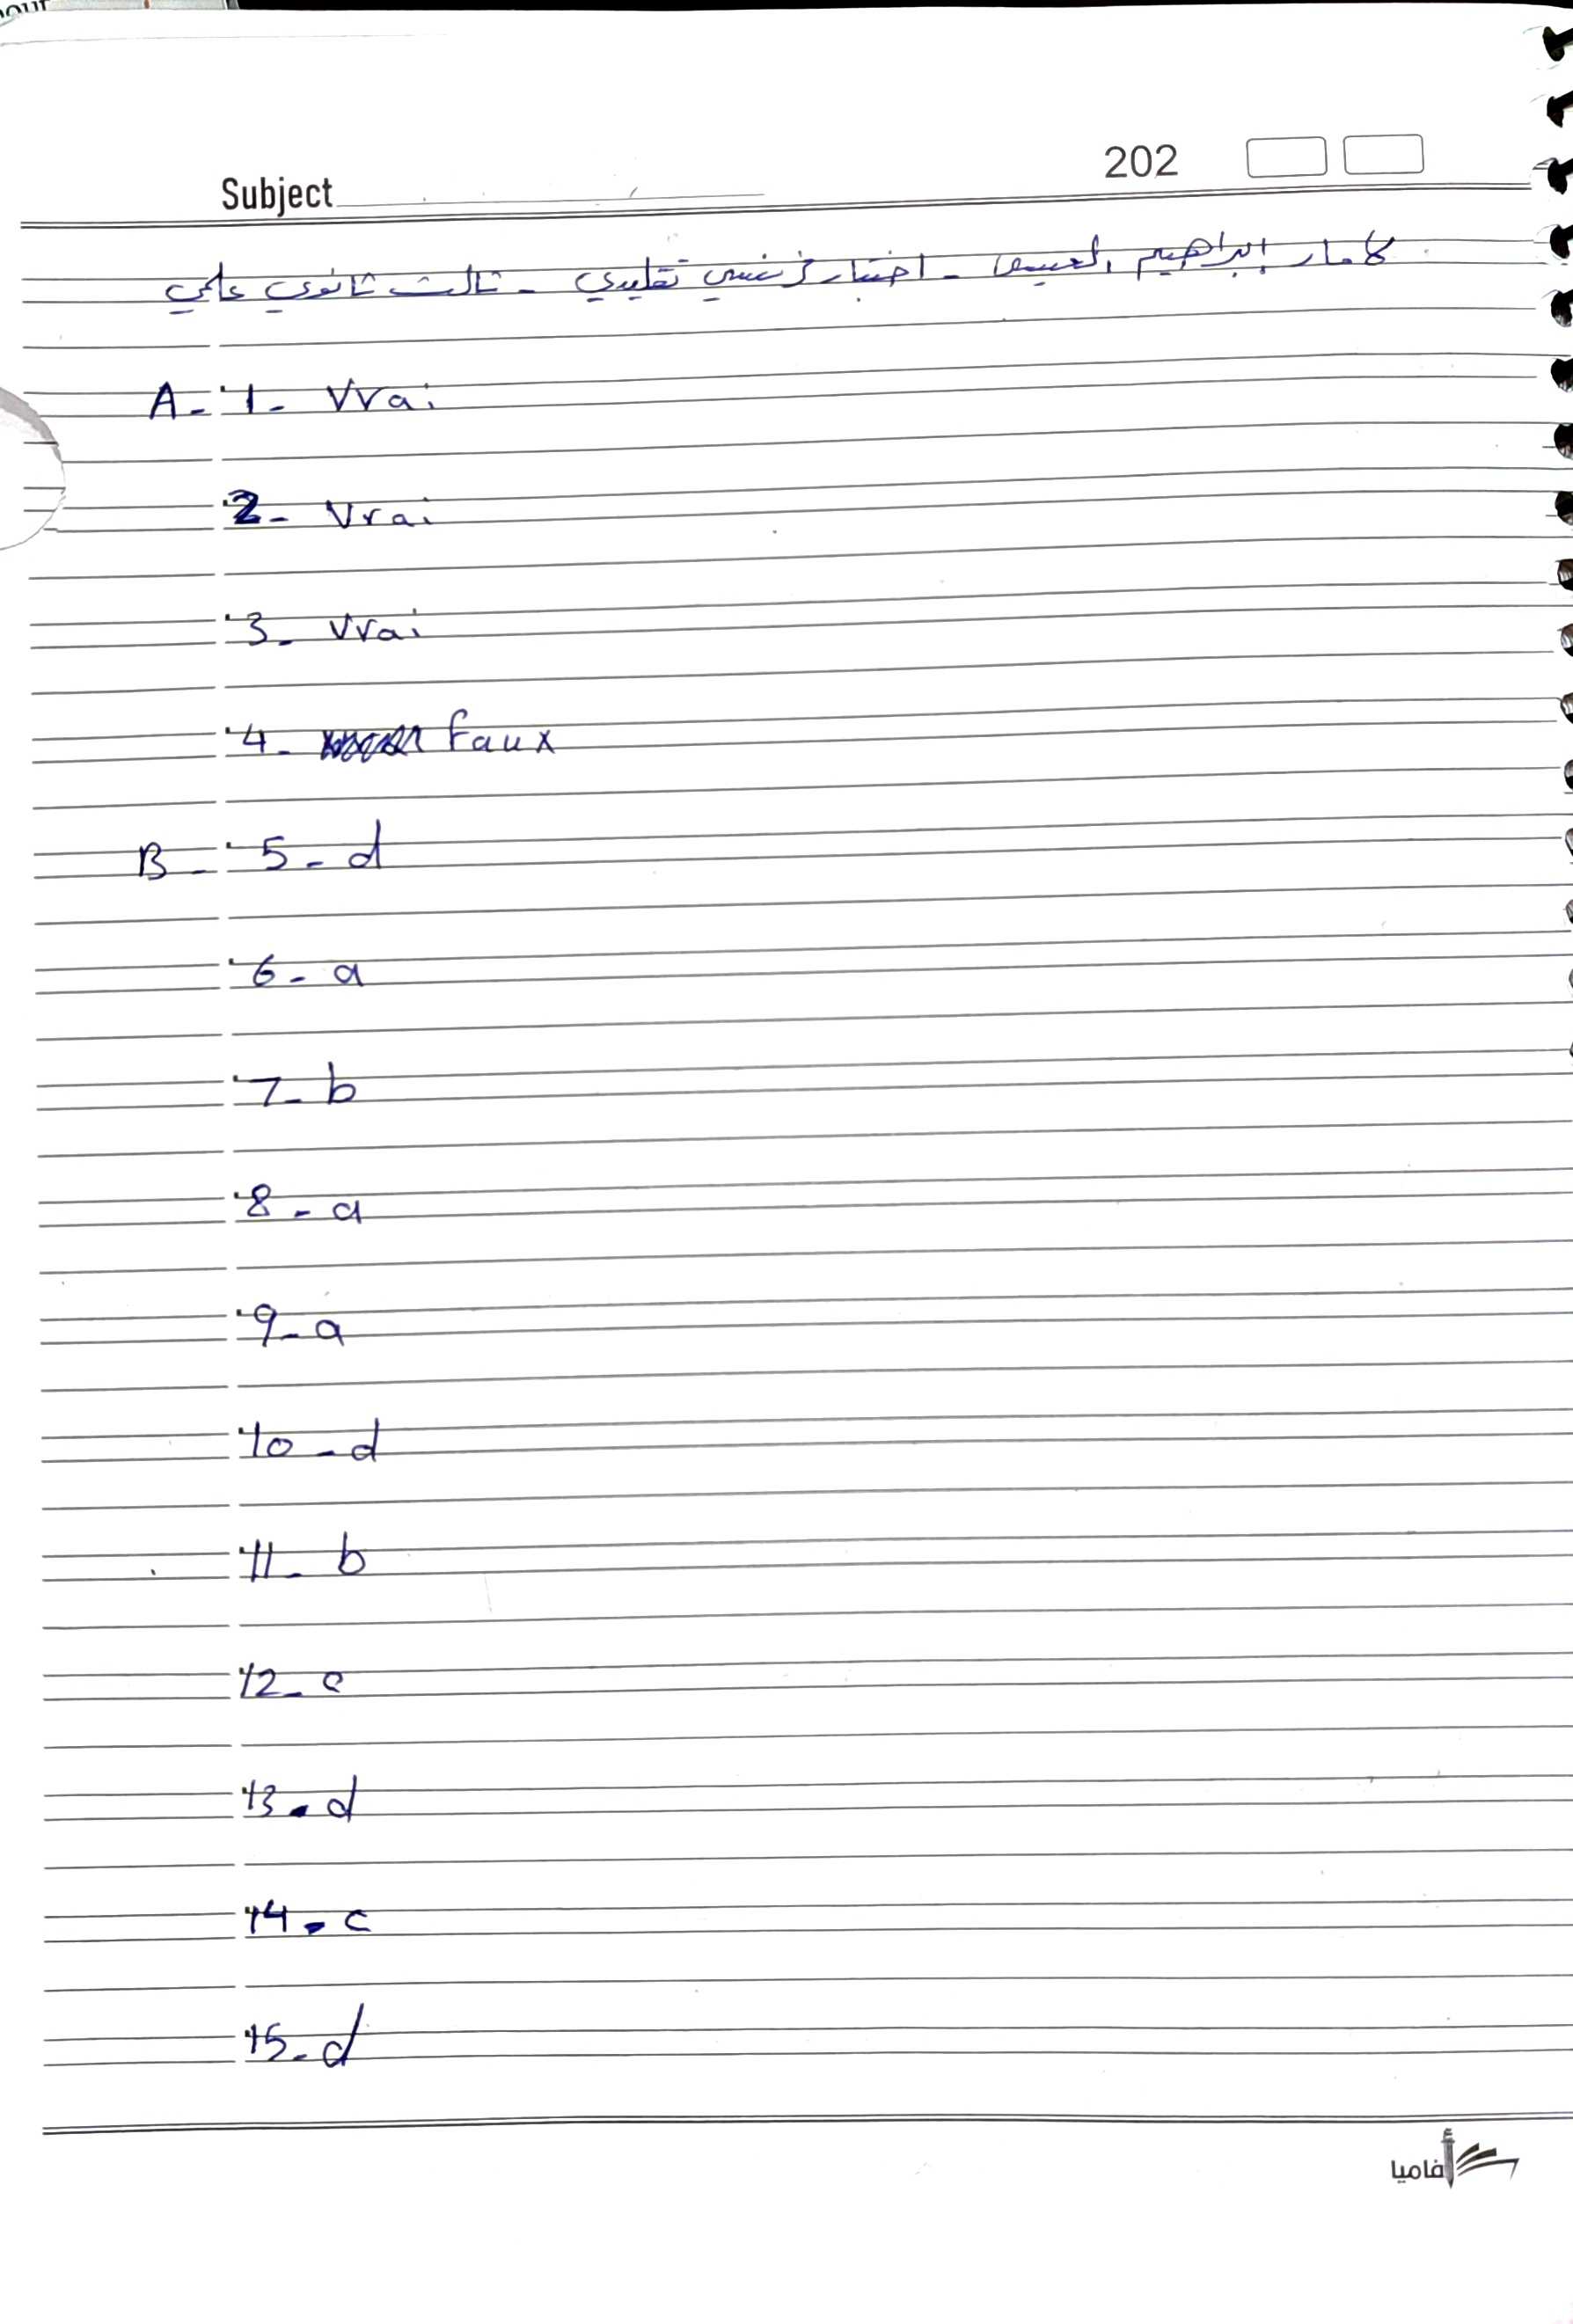 202
Subject
إبراهيم العيسى - اختبار فرنسي تقليدي - ثالث ثانوي علمي
A - 1 - Vrai
2 - Vrai
3 - Vrai
4 - Faux
B - 5 - d
6 - a
7 - b
8 - a
9 - a
10 - d
11 - b
12 - c
13 - d
14 - c
15 - d
أفاميا